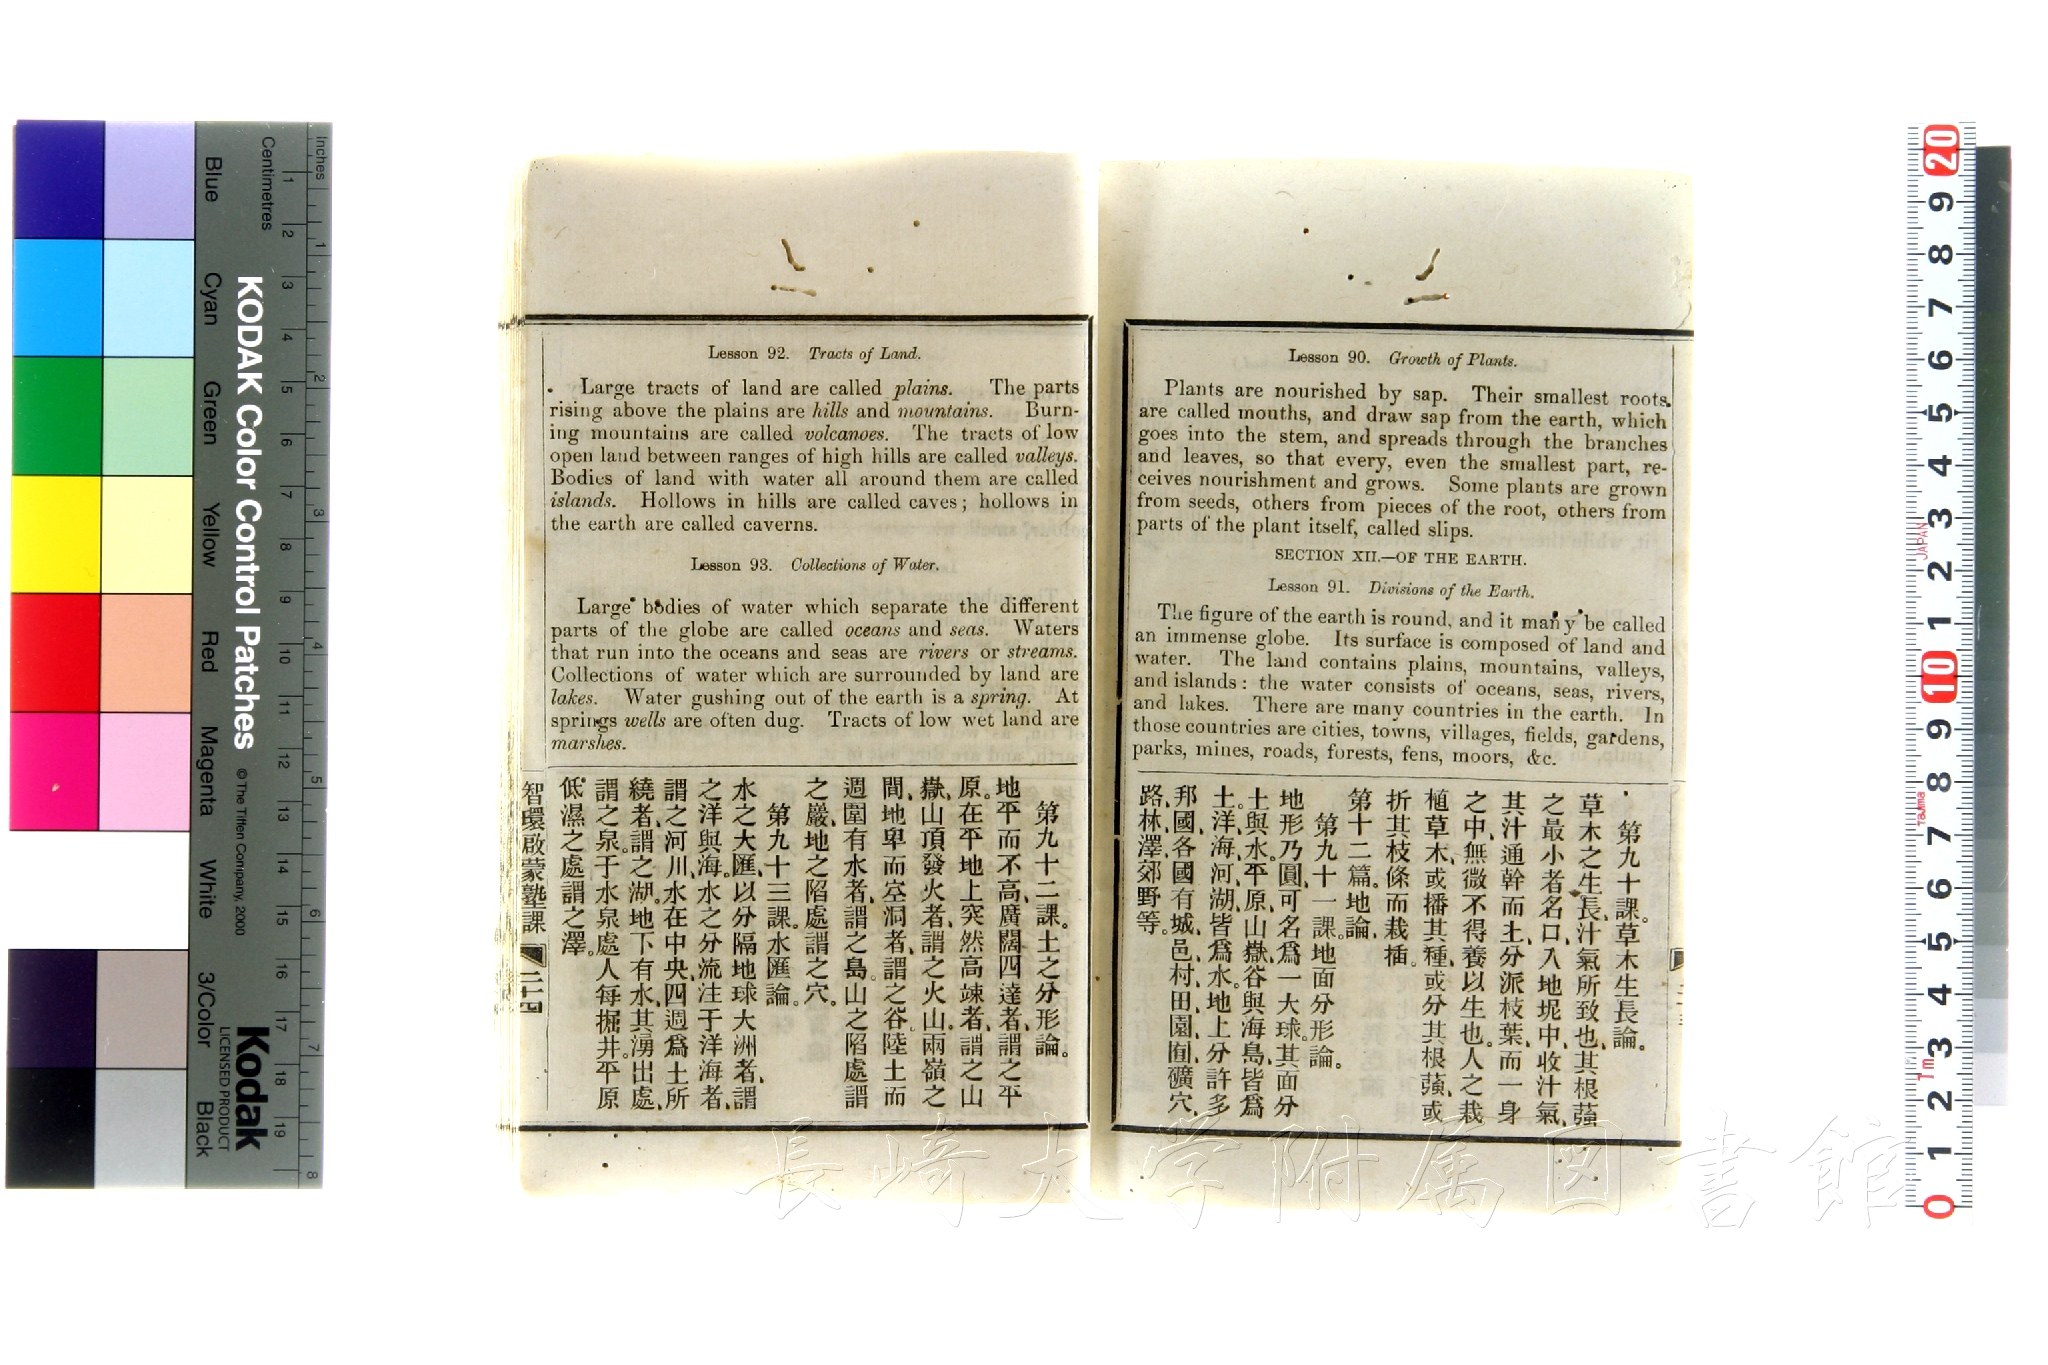 Lesson 90. Growth of Plants.
Plants are nourished by sap. Their smallest roots
are called mouths, and draw sap from the earth, which
goes into the stem, and spreads through the branches
and leaves, so that every, even the smallest part, re-
ceives nourishment and grows. Some plants are grown
from seeds, others from pieces of the root, others from
parts of the plant itself, called slips.
SECTION XII.—OF THE EARTH.
Lesson 91. Divisions of the Earth.
The figure of the earth is round, and it may be called
an immense globe. Its surface is composed of land and
water. The land contains plains, mountains, valleys,
and islands: the water consists of oceans, seas, rivers,
and lakes. There are many countries in the earth. In
those countries are cities, towns, villages, fields, gardens,
parks, mines, roads, forests, fens, moors, &c.
第九十課。草木生長論。
草木之生長、汁氣所致也、其根蕦
之最小者名口、入地坭中、收汁氣、
其汁通幹而上、分派枝葉、而一身
之中、無微不得養以生也。人之栽
植草木、或播其種、或分其根蕦、或
折其枝條而栽插。
第十二篇。地論、
第九十一課。地面分形論。
地形乃圓、可名為一大球、其面分
土與水。平原、山嶽、谷與海島、皆為
土。洋、海、河、湖、皆為水。地上分許多
邦國、各國有城、邑、村、田、園、囿、礦穴、
路、林、澤、郊野等。
Lesson 92. Tracts of Land.
Large tracts of land are called plains. The parts
rising above the plains are hills and mountains. Burn-
ing mountains are called volcanoes. The tracts of low
open land between ranges of high hills are called valleys.
Bodies of land with water all around them are called
islands. Hollows in hills are called caves; hollows in
the earth are called caverns.
Lesson 93. Collections of Water.
Large bodies of water which separate the different
parts of the globe are called oceans and seas. Waters
that run into the oceans and seas are rivers or streams.
Collections of water which are surrounded by land are
lakes. Water gushing out of the earth is a spring. At
springs wells are often dug. Tracts of low wet land are
marshes.
第九十二課。土之分形論。
地平而不高、廣闊四達者、謂之平
原。在平地上突然高竦者、謂之山
嶽、山頂發火者、謂之火山。兩嶺之
間、地卑而空洞者、謂之谷。陸土而
週圍有水者、謂之島。山之陷處謂
之巖、地之陷處謂之穴。
第九十三課。水匯論。
水之大匯、以分隔地球大洲者、謂
之洋與海。水之分流注于洋海者、
謂之河川、水在中央、四週為土所
繞者、謂之湖。地下有水、其湧出處、
謂之泉。于水泉處人每掘井。平原
低濕之處謂之澤。
智環啟蒙塾課
二十四
KODAK Color Control Patches
© The Tiffen Company, 2000
Kodak
LICENSED PRODUCT
Inches
Centimetres
1 2 3 4 5 6 7 8 9 10 11 12 13 14 15 16 17 18 19
1 2 3 4 5 6 7 8
Blue
Cyan
Green
Yellow
Red
Magenta
White
3/Color
Black
20
9
8
7
6
5
4
3
2
1
10
9
8
7
6
5
4
3
2
1
0
JAPAN
Tajima
1m
長崎大学附属図書館